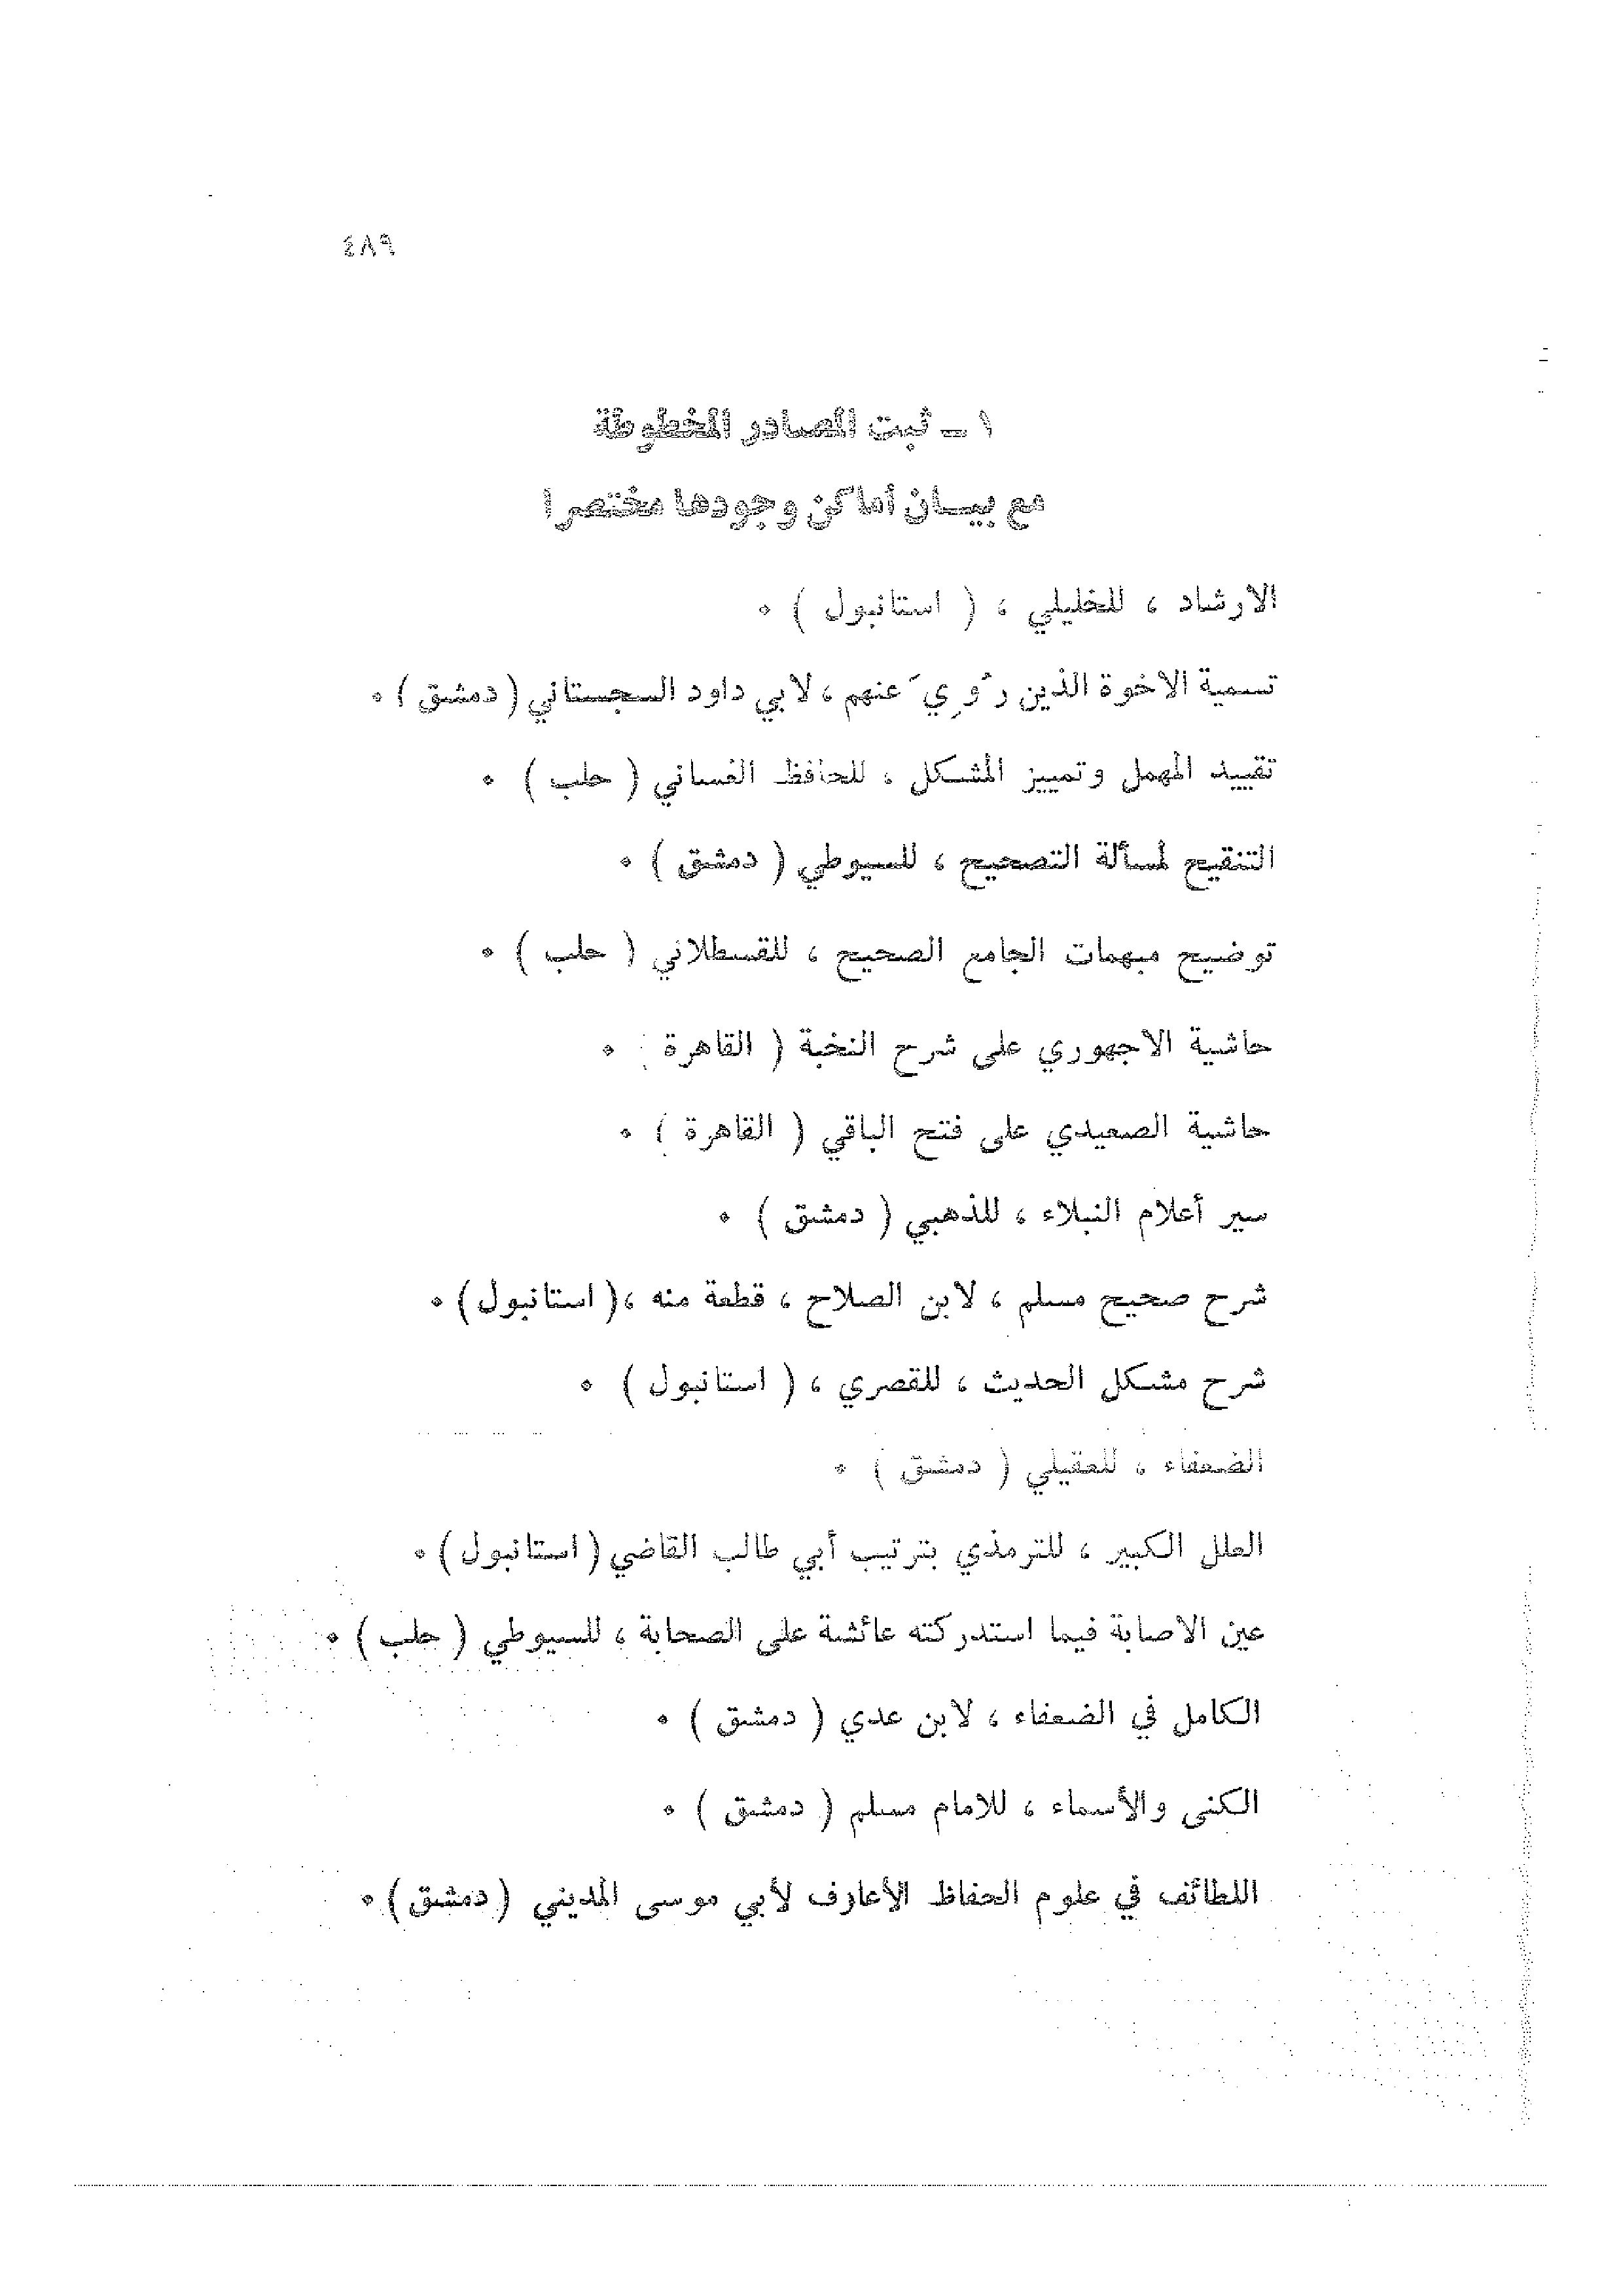 ٤٨٩
١ ـ ثبت المصادر المخطوطة
مع بيسان أماكن وجودها مختصرا
الارشاد ، للخليلي ، ( استانبول ) .
تسمية الاخوة الذين رُوِيَ عنهم ، لابي داود السجستاني ( دمشق ) .
تقييد المهمل وتمييز المشكل ، للحافظ الغساني ( حلب ) .
التنقيح لمسألة التصحيح ، للسيوطي ( دمشق ) .
توضيح مبهمات الجامع الصحيح ، للقسطلاني ( حلب ) .
حاشية الاجهوري على شرح النخبة ( القاهرة ) .
حاشية الصعيدي على فتح الباقي ( القاهرة ) .
سير أعلام النبلاء ، للذهبي ( دمشق ) .
شرح صحيح مسلم ، لابن الصلاح ، قطعة منه ، ( استانبول ) .
شرح مشكل الحديث ، للقصري ، ( استانبول ) .
الضعفاء ، للعقيلي ( دمشق ) .
العلل الكبير ، للترمذي بترتيب أبي طالب القاضي ( استانبول ) .
عين الاصابة فيما استدركته عائشة على الصحابة ، للسيوطي ( حلب ) .
الكامل في الضعفاء ، لابن عدي ( دمشق ) .
الكنى والأسماء ، للامام مسلم ( دمشق ) .
اللطائف في علوم الحفاظ الأعارف لأبي موسى المديني ( دمشق ) .